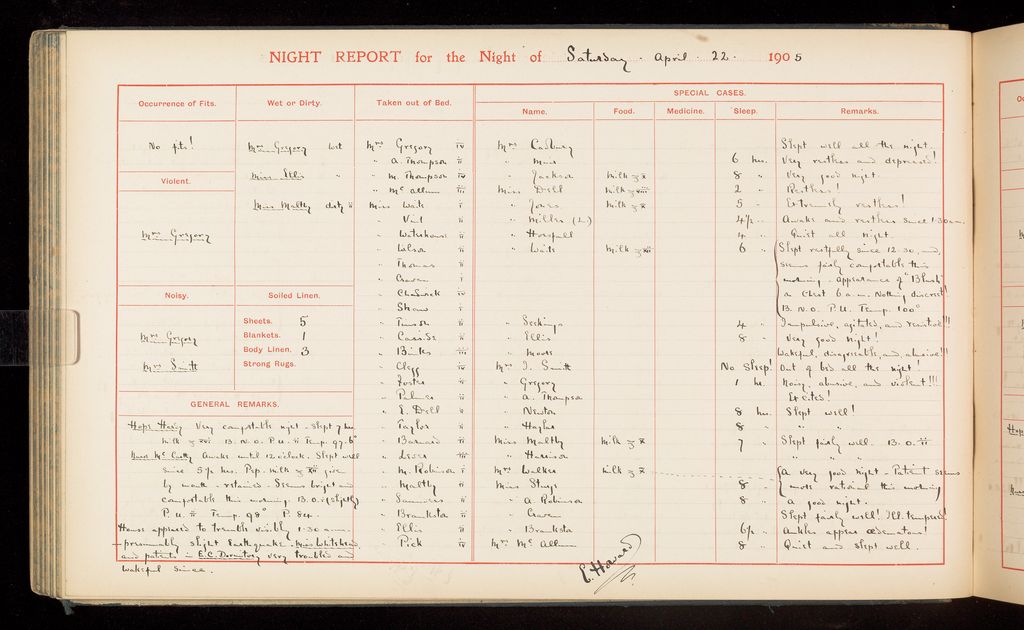 NIGHT REPORT for the Night of Saturday April 22 1905
Occurrence of Fits.
No fits!
Violent.
Mrs Gregory
Noisy.
Mrs Gregory
Mrs Smith
Wet or Dirty.
Mrs Gregory wet
Miss Ellis "
Miss Maltby dirty ii
Soiled Linen.
Sheets. 5
Blankets. 1
Body Linen. 3
Strong Rugs.
GENERAL REMARKS.
Very comfortable night. Slept 7 hrs
B.N.O. P.U. ii Temp. 97.6°
Awake until 12 o'clock. Slept well
since 5½ hrs. Pep. milk given
by mouth - retained. Seems bright and
comfortable this morning. B.O. i (slightly)
P.U. ii Temp. 98° P. 84.
House appeared to tremble visibly 1.30 a.m.
- presumably slight Earthquake! Miss Whitehead
and patients in E.C. Dormitory very troubled and
wakeful since.
Taken out of Bed.
Mrs Gregory iv
" A. Thompson ii
" M. Thompson iv
" McAllum iii
Miss Waite i
" Vint ii
" Waterhouse ii
" Wilson ii
" Thomas ii
" Craven i
" Chadwick iv
" Shaw i
" ii
" ii
" Binks iii
" Clegg iv
" Foster ii
" Palmer ii
" E. Dell ii
" Taylor ii
" Barnard ii
" Lever iii
" M. Robinson i
" Maltby ii
" Saunders ii
" Branksta ii
" Ellis ii
" Pick iv
SPECIAL CASES.
Name. Food. Medicine. Sleep. Remarks.
Mrs Cadbury Slept well all the night.
" 6 hrs. Very restless and depressed!
" Jackson Milk ℥x 8 " Very good night.
Miss Dell Milk ℥viii 2 " Restless!
" Jones Milk ℥x 5 " Extremely restless!
" Miller (L.) 4½ " Awake and restless since 1.30 a.m.
" Horsfall 4 " Quiet all night.
" Waite Milk ℥xii 6 " Slept restfully since 12.30, and
seems fairly comfortable this
morning. Appearance of "Blush"
on Chest 6 a.m. Nothing discreet!
B.N.O. P.U. Temp. 100°
" Seckings 4 " Impulsive, agitated, and resistive!!!
" Ellis 8 " Very good night!
" Moore Wakeful, disagreeable, and abusive!!!
Mrs I. Smith No Sleep! Out of bed all the night!
" Gregory 1 hr. Noisy, abusive, and violent!!!
" A. Thompson Excited!
" Newton 8 hrs. Slept well!
" Hayler 8 " " "
Miss Maltby Milk ℥x 7 " Slept fairly well. B.O. ii
" Harrison " " "
Mrs Walker Milk ℥x A very good night. Patient seems
Miss Sturge 8 " more rational this morning
" A. Robinson 8 " A good night.
" Craven Slept fairly well! Ill. tempered!
" Branksta 6½ " Ankles appear œdematous!
Mrs McAllum 8 " Quiet and slept well.
E. Howard